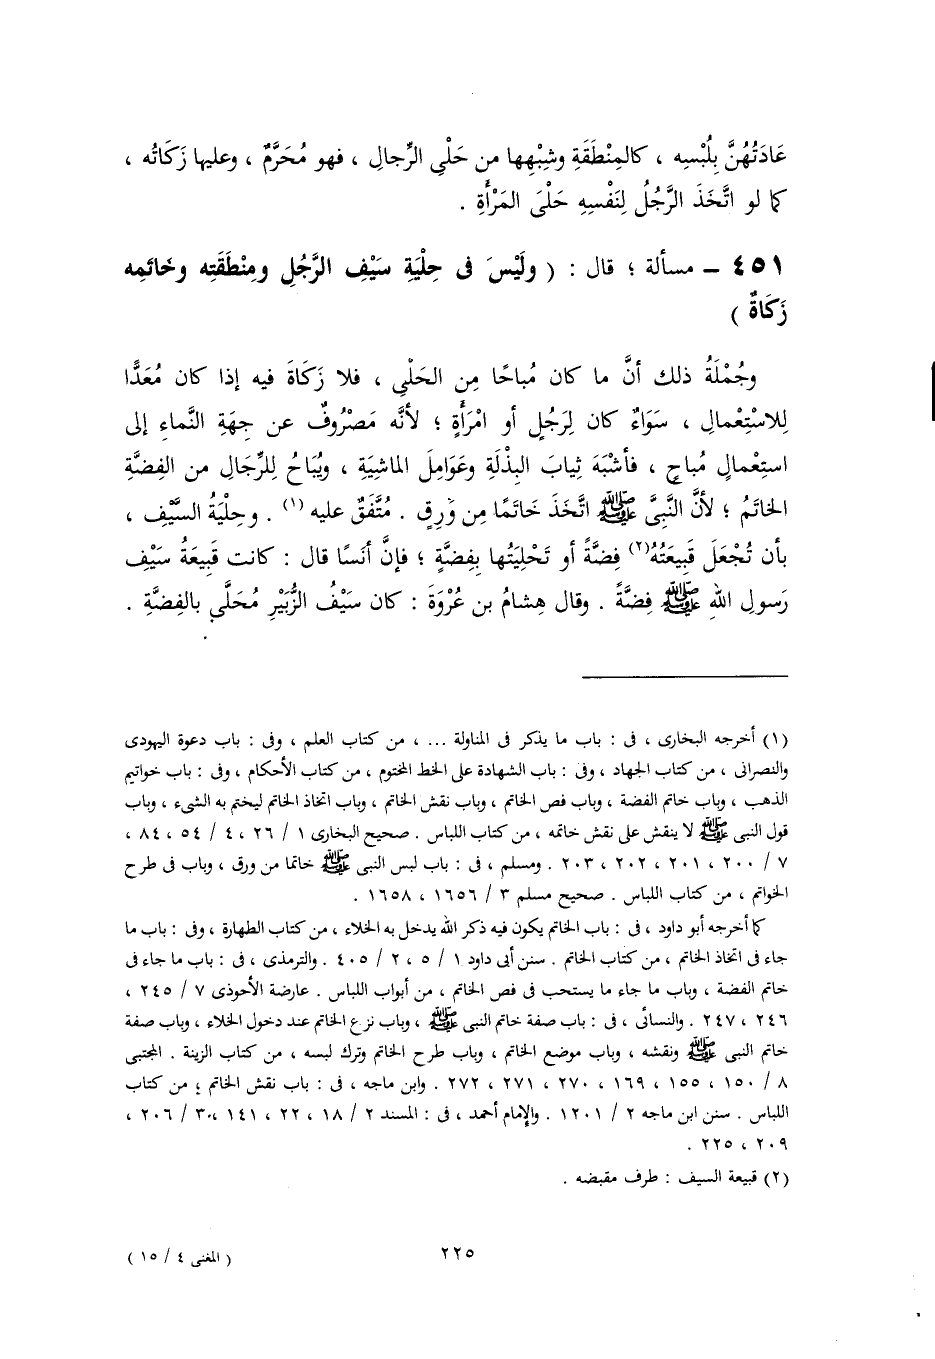 عَادَتُهُنَّ بِلُبْسِه ، كالمِنْطَقَةِ وشِبْهِها من حَلْىِ الرِّجالِ ، فهو مُحَرَّمٌ ، وعليها زَكَاتُه ،
كما لو اتَّخَذَ الرَّجُلُ لِنَفْسِهِ حَلْىَ المَرْأَةِ .
٤٥١ – مسألة ؛ قال : ( ولَيْسَ فى حِلْيَةِ سَيْفِ الرَّجُلِ ومِنْطَقَتِه وخَاتَمِه
زَكَاةٌ )
وجُمْلَةُ ذلك أنَّ ما كان مُباحًا مِن الحَلْىِ ، فلا زَكَاةَ فيه إذا كان مُعَدًّا
لِلاسْتِعْمالِ ، سَوَاءٌ كان لِرَجُلٍ أو امْرَأَةٍ ؛ لأنَّه مَصْرُوفٌ عن جِهَةِ النَّماءِ إلى
استِعْمالٍ مُباحٍ ، فأشْبَهَ ثِيابَ البِذْلَةِ وعَوَامِلَ الماشِيَةِ ، ويُبَاحُ لِلرِّجَالِ من الفِضَّةِ
الخاتَمُ ؛ لأنَّ النَّبِىَّ ﷺ اتَّخَذَ خَاتَمًا مِن وَرِقٍ . مُتَّفَقٌ عليه (١) . وحِلْيَةُ السَّيْفِ ،
بأن تُجْعَلَ قَبِيعَتُهُ(٢) فِضَّةً أو تَحْلِيَتُها بِفِضَّةٍ ؛ فإنَّ أنَسًا قال : كانت قَبِيعَةُ سَيْفِ
رَسولِ اللهِ ﷺ فِضَّةً . وقال هِشامُ بن عُرْوَةَ : كان سَيْفُ الزُّبَيْرِ مُحَلًّى بالفِضَّةِ .
(١) أخرجه البخارى ، فى : باب ما يذكر فى المناولة ... ، من كتاب العلم ، وفى : باب دعوة اليهودى
والنصرانى ، من كتاب الجهاد ، وفى : باب الشهادة على الخط المختوم ، من كتاب الأحكام ، وفى : باب خواتيم
الذهب ، وباب خاتم الفضة ، وباب فص الخاتم ، وباب نقش الخاتم ، وباب اتخاذ الخاتم ليختم به الشىء ، وباب
قول النبى ﷺ لا ينقش على نقش خاتمه ، من كتاب اللباس . صحيح البخارى ١ / ٢٦ ، ٤ / ٥٤ ، ٨٤ ،
٧ / ٢٠٠ ، ٢٠١ ، ٢٠٢ ، ٢٠٣ . ومسلم ، فى : باب لبس النبى ﷺ خاتما من ورق ، وباب فى طرح
الخواتم ، من كتاب اللباس . صحيح مسلم ٣ / ١٦٥٦ ، ١٦٥٨ .
كما أخرجه أبو داود ، فى : باب الخاتم يكون فيه ذكر الله يدخل به الخلاء ، من كتاب الطهارة ، وفى : باب ما
جاء فى اتخاذ الخاتم ، من كتاب الخاتم . سنن أبى داود ١ / ٥ ، ٢ / ٤٠٥ . والترمذى ، فى : باب ما جاء فى
خاتم الفضة ، وباب ما جاء ما يستحب فى فص الخاتم ، من أبواب اللباس . عارضة الأحوذى ٧ / ٢٤٥ ،
٢٤٦ ، ٢٤٧ . والنسائى ، فى : باب صفة خاتم النبى ﷺ ، وباب نزع الخاتم عند دخول الخلاء ، وباب صفة
خاتم النبى ﷺ ونقشه ، وباب موضع الخاتم ، وباب طرح الخاتم وترك لبسه ، من كتاب الزينة . المجتبى
٨ / ١٥٠ ، ١٥٥ ، ١٦٩ ، ٢٧٠ ، ٢٧١ ، ٢٧٢ . وابن ماجه ، فى : باب نقش الخاتم ، من كتاب
اللباس . سنن ابن ماجه ٢ / ١٢٠١ . والإمام أحمد ، فى : المسند ٢ / ١٨ ، ٢٢ ، ١٤١ ، ٣ / ٢٠٦ ،
٢٠٩ ، ٢٢٥ .
(٢) قبيعة السيف : طرف مقبضه .
٢٢٥
( المغنى ٤ / ١٥ )